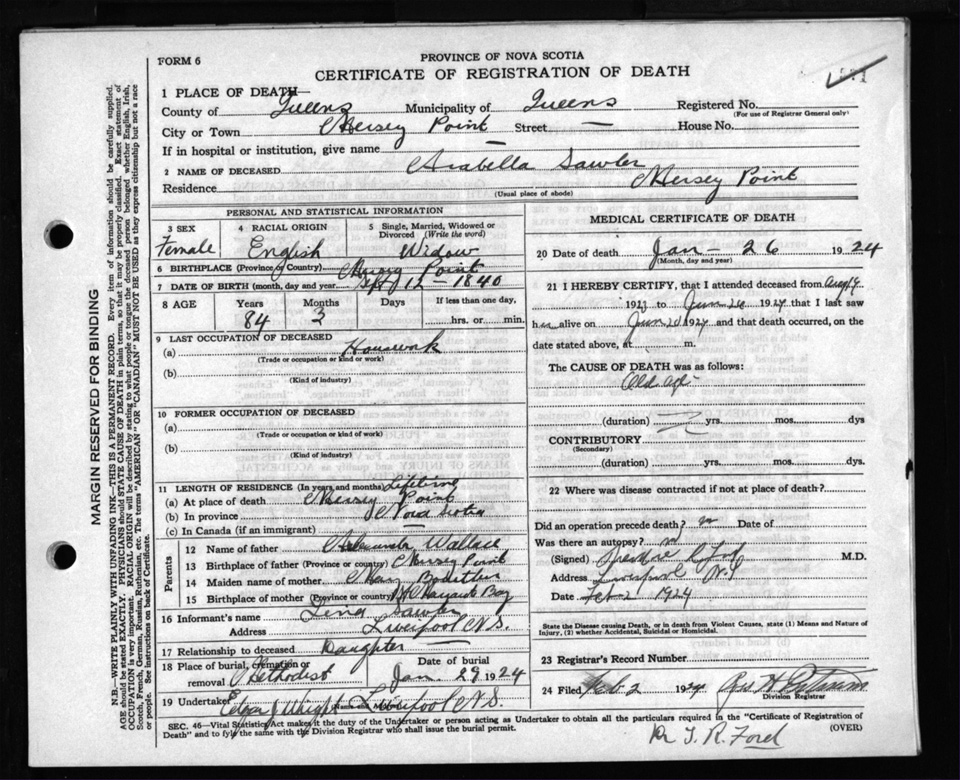 FORM 6
PROVINCE OF NOVA SCOTIA
CERTIFICATE OF REGISTRATION OF DEATH
1 PLACE OF DEATH—
County of Queens Municipality of Queens Registered No.
(For use of Registrar General only)
City or Town Mersey Point Street — House No.
If in hospital or institution, give name —
2 NAME OF DECEASED Arabella Sawler
Residence Mersey Point
(Usual place of abode)
PERSONAL AND STATISTICAL INFORMATION
3 SEX 4 RACIAL ORIGIN 5 Single, Married, Widowed or Divorced (Write the word)
Female English Widow
6 BIRTHPLACE (Province or Country) Mersey Point
7 DATE OF BIRTH (month, day and year) Sept 12 – 1840
8 AGE Years Months Days If less than one day,
84 3 hrs. or min.
9 LAST OCCUPATION OF DECEASED
(a) Housework
(Trade or occupation or kind or work)
(b)
(Kind of industry)
10 FORMER OCCUPATION OF DECEASED
(a)
(Trade or occupation or kind of work)
(b)
(Kind of industry)
11 LENGTH OF RESIDENCE (In years and months) Lifetime
(a) At place of death Mersey Point
(b) In province Nova Scotia
(c) In Canada (if an immigrant)
Parents
12 Name of father Wallace
13 Birthplace of father (Province or country) Mersey Point
14 Maiden name of mother Mary
15 Birthplace of mother (Province or country) Bay
16 Informant's name Lena Sawler
Address Liverpool N.S.
17 Relationship to deceased Daughter
18 Place of burial, cremation or removal Methodist Date of burial Jan. 29 1924
19 Undertaker Edgar J Wright Liverpool N.S.
MEDICAL CERTIFICATE OF DEATH
20 Date of death Jan – 26 1924
(Month, day and year)
21 I HEREBY CERTIFY, that I attended deceased from
1923 to 1924 that I last saw
her alive on 1924 and that death occurred, on the
date stated above, at m.
The CAUSE OF DEATH was as follows:
Old age
(duration) yrs. mos. dys
CONTRIBUTORY
(Secondary)
(duration) yrs. mos. dys.
22 Where was disease contracted if not at place of death?
Did an operation precede death? no Date of
Was there an autopsy? no
(Signed) M.D.
Address Liverpool N.S
Date Feb 2 1924
State the Disease causing Death, or in death from Violent Causes, state (1) Means and Nature of Injury, (2) whether Accidental, Suicidal or Homicidal.
23 Registrar's Record Number
24 Filed Feb. 2 1924
Division Registrar
SEC. 46—Vital Statistics Act makes it the duty of the Undertaker or person acting as Undertaker to obtain all the particulars required in the "Certificate of Registration of
Death" and to fyle the same with the Division Registrar who shall issue the burial permit. (OVER)
Dr T. R. Ford
MARGIN RESERVED FOR BINDING
N.B.—WRITE PLAINLY WITH UNFADING INK—THIS IS A PERMANENT RECORD. Every item of information should be carefully supplied.
AGE should be stated EXACTLY. PHYSICIANS should STATE CAUSE OF DEATH in plain terms, so that it may be properly classified. Exact statement of
OCCUPATION is very important. RACIAL ORIGIN will be described by stating to what people or tongue the deceased person belonged whether English, Irish,
Scotch, French, German, Russian, Ruthenian, etc. The terms "AMERICAN" OR "CANADIAN" MUST NOT BE USED as they express citizenship but not a race
or people. See instructions on back of Certificate.